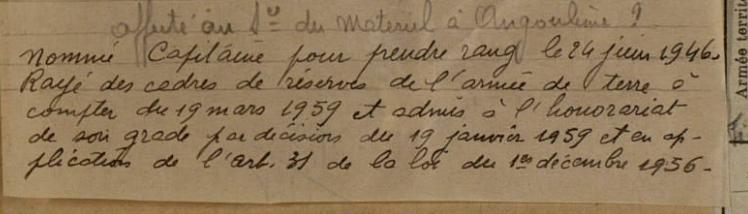 affecté au Sce du Matériel à Angoulême ?
Nommé Capitaine pour prendre rang le 24 juin 1946.
Rayé des cadres de réserve de l'armée de terre à
compter du 19 mars 1959 et admis à l'honorariat
de son grade par décision du 19 janvier 1959 et en ap-
plication de l'art. 31 de la loi du 1er décembre 1956.
Armée territ